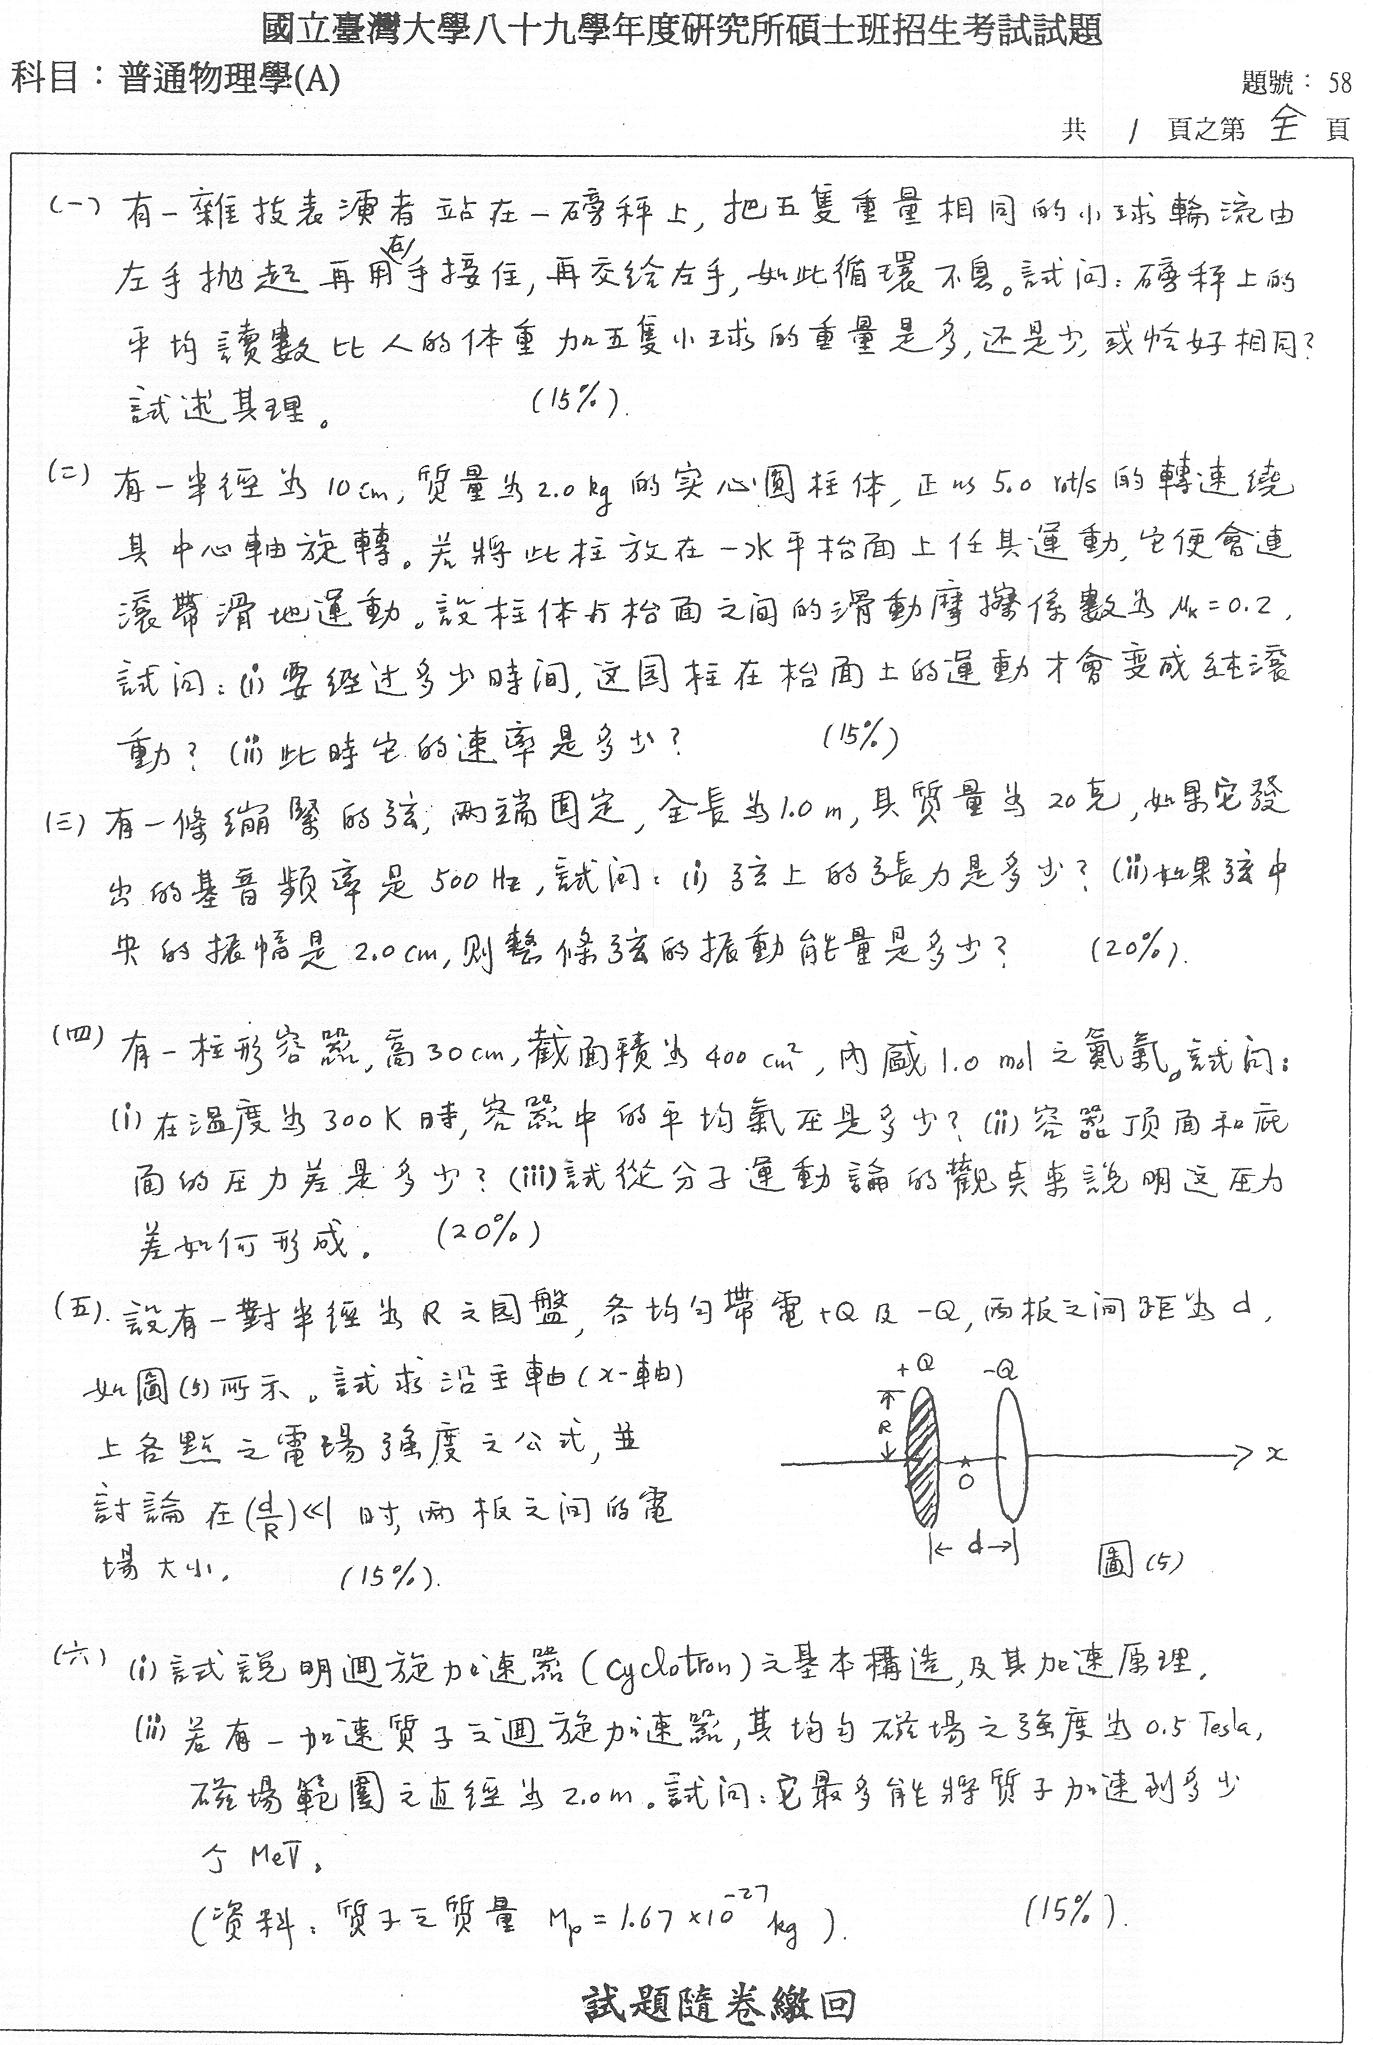 國立臺灣大學八十九學年度研究所碩士班招生考試試題
科目：普通物理學(A)
題號：58
共 1 頁之第 全 頁
(一) 有一雜技表演者站在一磅秤上, 把五隻重量相同的小球輪流由
左手拋起再用右手接住, 再交給左手, 如此循環不息。試问：磅秤上的
平均讀數比人的体重加五隻小球的重量是多, 还是少, 或恰好相同?
試述其理。 (15%).
(二) 有一半徑为 10 cm, 質量为 2.0 kg 的实心圓柱体, 正以 5.0 rot/s 的轉速繞
其中心軸旋轉。若將此柱放在一水平枱面上任其運動, 它便會連
滾帶滑地運動。設柱体与枱面之间的滑動摩擦係數为 μk = 0.2,
試问：(i) 要經过多少時间, 这园柱在枱面上的運動才會变成纯滾
動? (ii) 此時它的速率是多少? (15%)
(三) 有一條繃緊的弦, 兩端固定, 全長为 1.0 m, 其質量为 20克, 如果它發
出的基音頻率是 500 Hz, 試问：(i) 弦上的張力是多少? (ii) 如果弦中
央的振幅是 2.0 cm, 则整條弦的振動能量是多少? (20%).
(四) 有一柱形容器, 高 30 cm, 截面積为 400 cm², 內盛 1.0 mol 之氮氣。試问：
(i) 在溫度为 300 K 時, 容器中的平均氣压是多少? (ii) 容器顶面和底
面的压力差是多少? (iii) 試從分子運動論的觀点來說明这压力
差如何形成。 (20%)
(五). 設有一對半徑为 R 之园盤, 各均匀帶電 +Q 及 -Q, 兩板之间距为 d,
如圖(5)所示。試求沿主軸(x-軸)
上各點之電場強度之公式, 並
討論在 (d/R) ≪ 1 时, 兩板之间的電
場大小。 (15%).
+Q -Q
R
O
x
|← d →|
圖(5)
(六) (i) 試說明迴旋加速器 (Cyclotron) 之基本構造, 及其加速原理。
(ii) 若有一加速質子之迴旋加速器, 其均匀磁場之強度为 0.5 Tesla,
磁場範圍之直徑为 2.0 m。試问：它最多能將質子加速到多少
个 MeV。
(資料：質子之質量 Mp = 1.67 × 10⁻²⁷ kg). (15%).
試題隨卷繳回